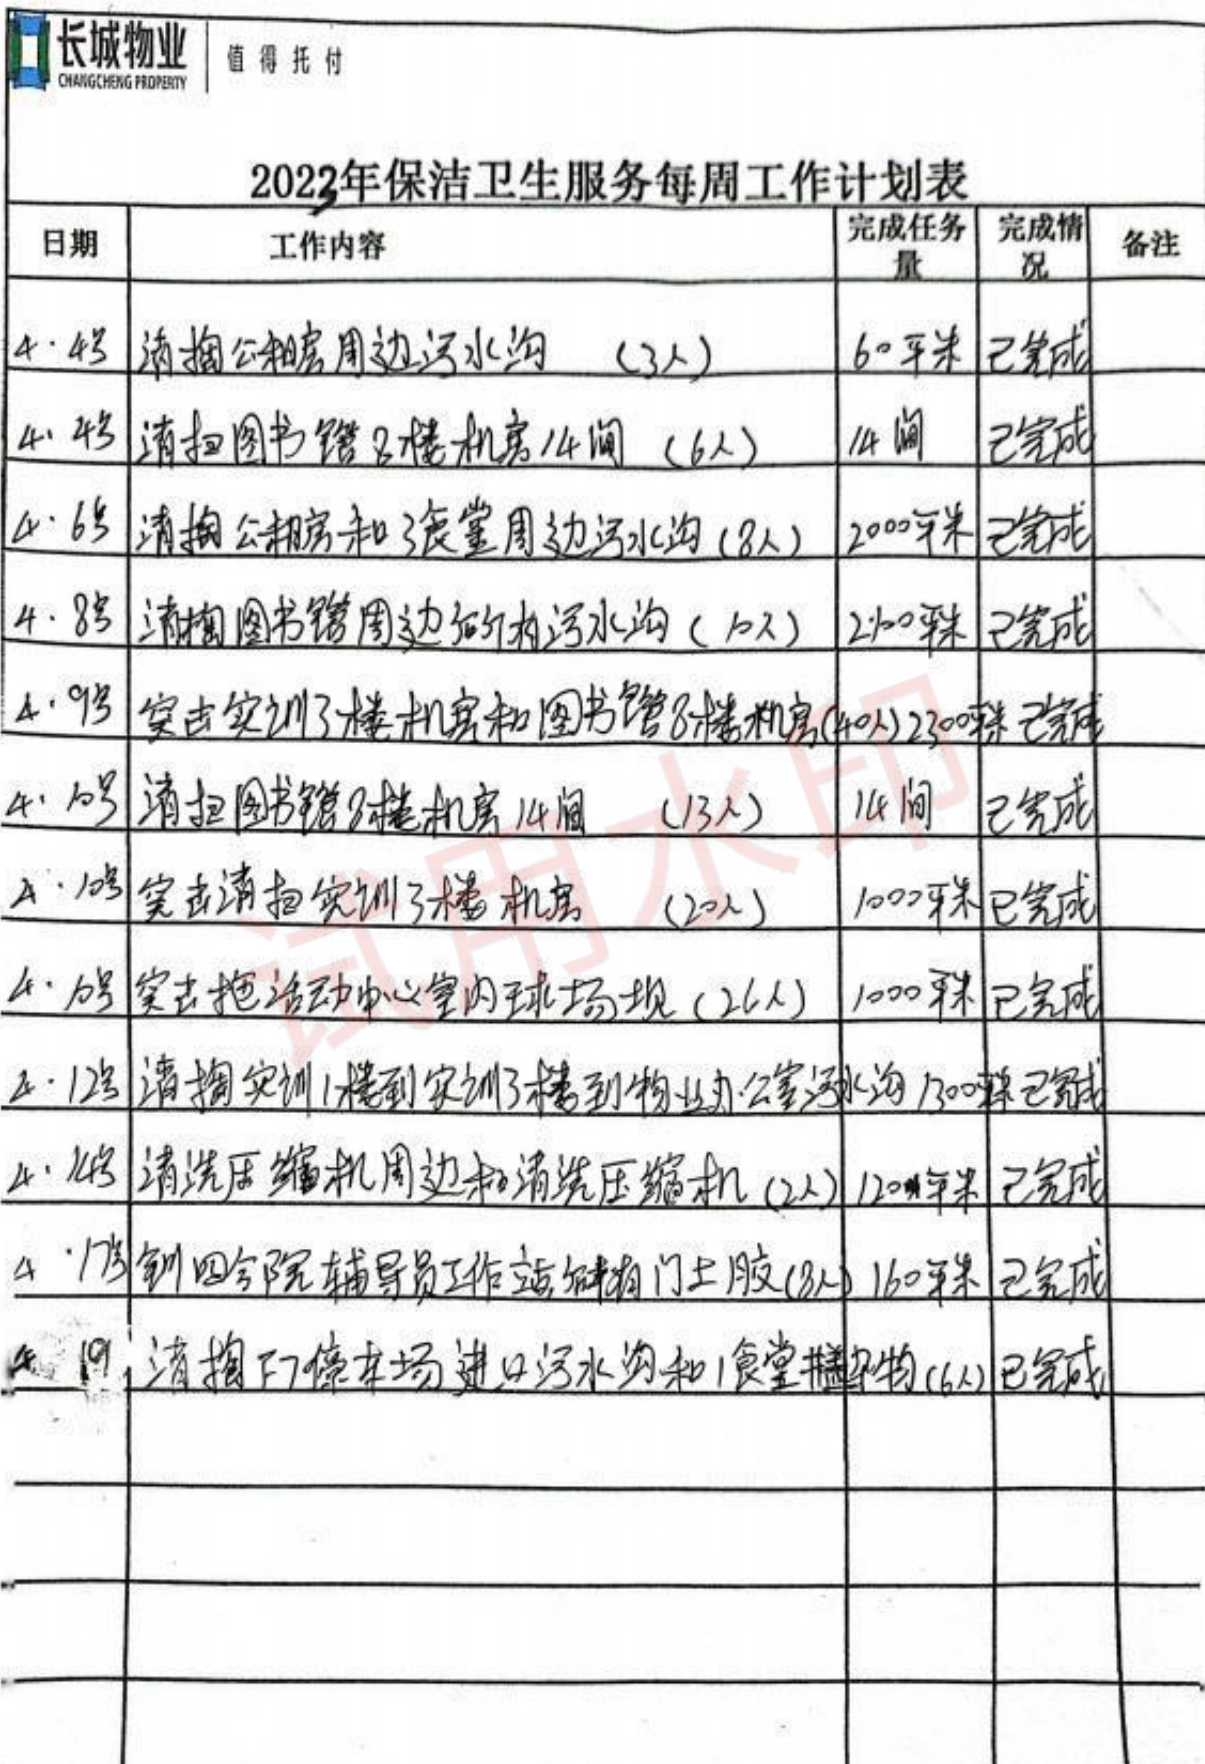 长城物业
CHANGCHENG PROPERTY
值得托付
2023年保洁卫生服务每周工作计划表
日期 工作内容 完成任务量 完成情况 备注
4.4号 清掏公租房周边污水沟 (3人) 60平米 已完成
4.4号 清扫图书馆8楼机房14间 (6人) 14间 已完成
4.6号 清掏公租房和3食堂周边污水沟(8人) 2000平米 已完成
4.8号 清掏图书馆周边所有污水沟(10人) 2100平米 已完成
4.9号 突击实训3楼机房和图书馆8楼机房(40人) 2300平米 已完成
4.10号 清扫图书馆8楼机房14间 (13人) 14间 已完成
4.10号 突击清扫实训3楼机房 (20人) 1000平米 已完成
4.10号 突击拖活动中心室内球场坝(26人) 1000平米 已完成
4.12号 清掏实训1楼到实训3楼到物业办公室污水沟 1300平米 已完成
4.14号 清洗压缩机周边和清洗压缩机(2人) 120平米 已完成
4.17号 四合院辅导员工作站所有门上胶(8人) 160平米 已完成
4 19 清掏F7停车场进口污水沟和1食堂杂物(6人) 已完成
试用水印